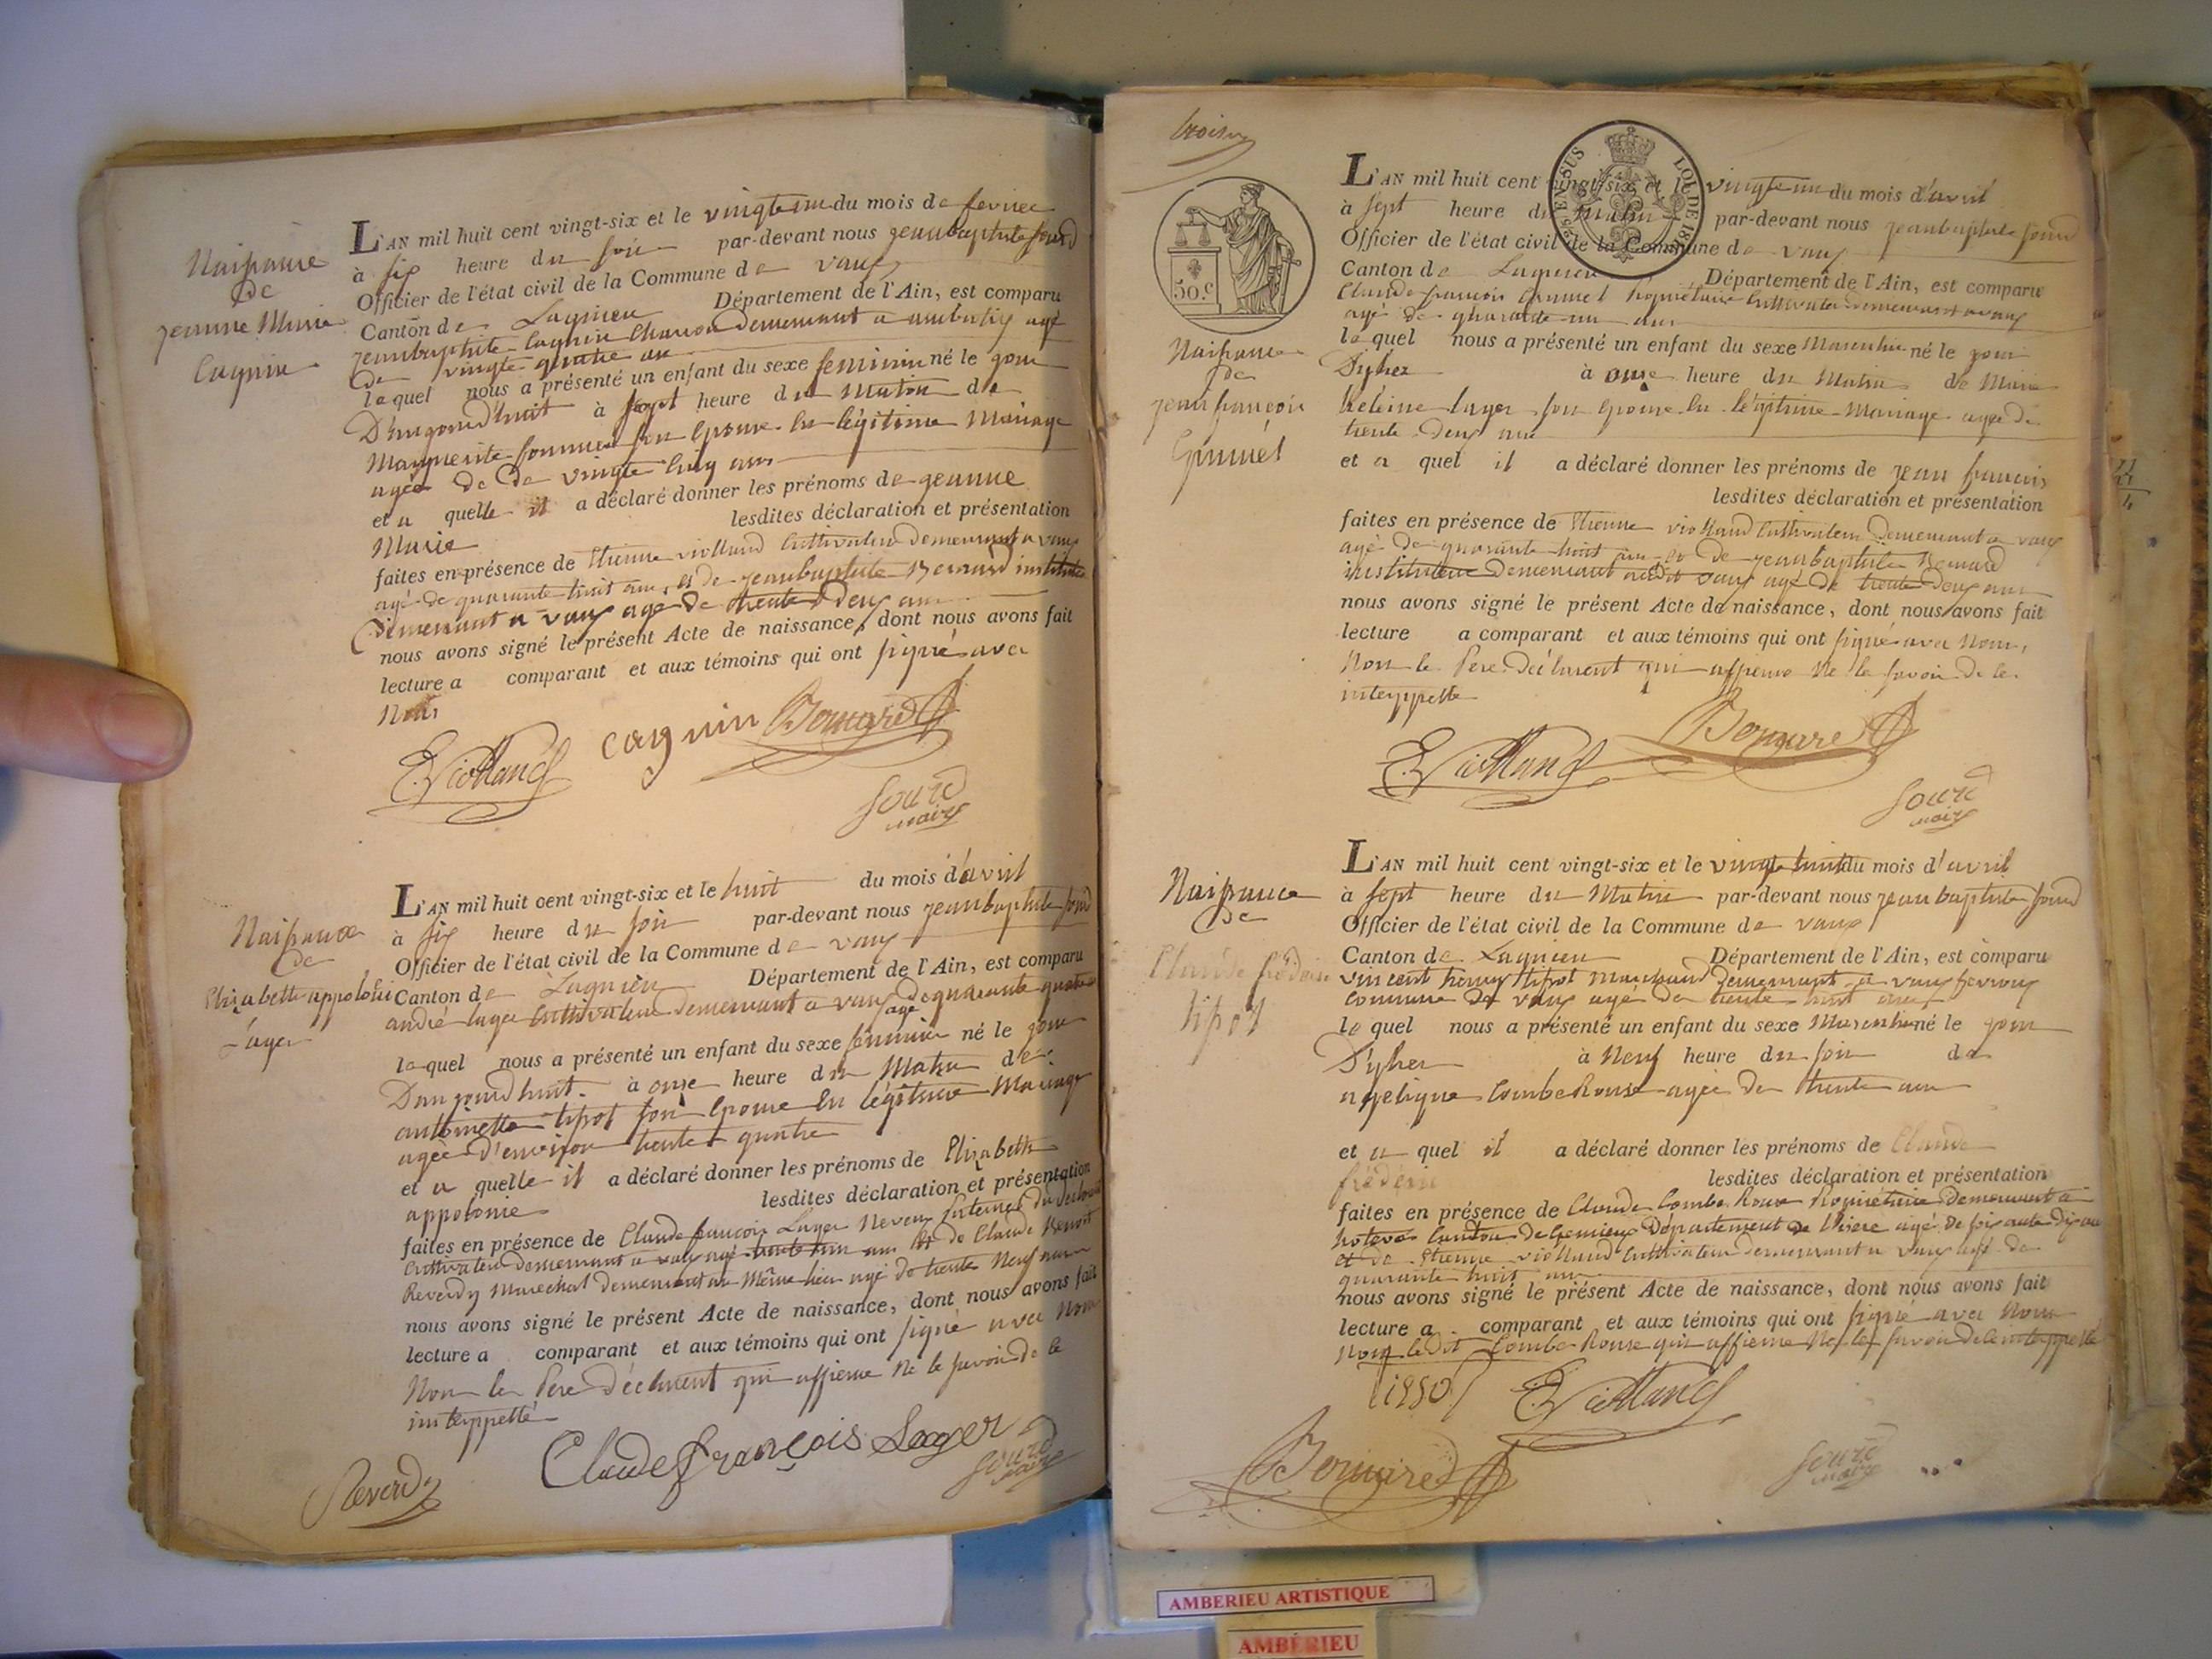 Naissance
de
jeanne Marie
Cagnin
L'AN mil huit cent vingt-six et le vingt un du mois de fevrier
à six heure du soir par-devant nous jeanbaptiste sourd
Officier de l'état civil de la Commune de vaux
Canton de Lagnieu Département de l'Ain, est comparu
jeanbaptiste Cagnin Charron demeurant a ambutrix agé
de vingte quatre an
le quel nous a présenté un enfant du sexe feminin né le jour
D'aujourd'huit à sept heure du Matin de
Marguerite son Epouse En légitime Mariage
agée de de vingte Cinq ans
et a quelle il a déclaré donner les prénoms de jeanne
Marie lesdites déclaration et présentation
faites en présence de Etienne violland Cultivateur demeurant a vaux
agé de quarante huit ans, et de jeanbaptiste Bernard instituteur
Demeurant a vaux agé de trente Deux ans
nous avons signé le présent Acte de naissance, dont nous avons fait
lecture a comparant et aux témoins qui ont signé avec
Nous
E. Violland cagnin Bernard
Sourd
maire
Naissance
de
Elizabette appolonie
Layer
L'AN mil huit cent vingt-six et le huit du mois d'avril
à six heure du soir par-devant nous jeanbaptiste sourd
Officier de l'état civil de la Commune de vaux
Canton de Lagnieu Département de l'Ain, est comparu
andré Layer Cultivateur demeurant a vaux agé de quarante quatre
le quel nous a présenté un enfant du sexe feminin né le jour
Daujourdhuit à onze heure du Matin de
antoinette tipot son Epouse En légitime Mariage
agée d'environ trente quatre
et a quelle il a déclaré donner les prénoms de Elizabette
appolonie lesdites déclaration et présentation
faites en présence de Claude francois Layer Neveux paternel du declarant
Cultivateur demeurant a vaux agé trente un ans Et de Claude Benoit
Reverdy Marechal demeurant au Même lieu agé de trente Neuf ans
nous avons signé le présent Acte de naissance, dont nous avons fait
lecture a comparant et aux témoins qui ont signé avec Nous
Non le Pere déclarent qui affirme Ne le savoir de le
interppellé
Claude françois Layer
Reverdy
Sourd
maire
trois
50.c
L'AN mil huit cent vingt-six et le vingte un du mois d'avril
à sept heure du Matin par-devant nous jeanbaptiste sourd
Officier de l'état civil de la Commune de vaux
Canton de Lagnieu Département de l'Ain, est comparu
Claude francois Propriétaire Cultivateur demeurant a vaux
agé de quarante un ans
le quel nous a présenté un enfant du sexe Masculin né le jour
D'yher à onze heure du Matin de Marie
heleine Layer son Epouse En légitime Mariage agée de
trente Deux ans
Naissance
de
jean francois
et a quel il a déclaré donner les prénoms de jean francois
lesdites déclaration et présentation
faites en présence de Etienne violland Cultivateur demeurant a vaux
agé de quarante huit ans et de jeanbaptiste Bernard
instituteur demeurant audit vaux agé de trente Deux ans
nous avons signé le présent Acte de naissance, dont nous avons fait
lecture a comparant et aux témoins qui ont signé avec Nous,
Non le Pere déclarent qui affirme Ne le savoir de le
interppellé
E. Violland Bernard
Sourd
maire
Naissance
de
Claude fréderic
tipot
L'AN mil huit cent vingt-six et le vingte huit du mois d'avril
à sept heure du Matin par-devant nous jeanbaptiste sourd
Officier de l'état civil de la Commune de vaux
Canton de Lagnieu Département de l'Ain, est comparu
vincent tipot Marchand Demeurant a vaux fevroux
Commune de vaux agé de trente huit ans
le quel nous a présenté un enfant du sexe Masculin né le jour
D'yher à Neuf heure du soir de
angelique Combe Rousse agée de trente ans
et a quel il a déclaré donner les prénoms de Claude
fréderic lesdites déclaration et présentation
faites en présence de Claude Combe Rousse Propriétaire demeurant a
Canton de Cremieux Département de Lhisere agé de soixante dix ans
et de Etienne violland Cultivateur demeurant a vaux agé de
quarante huit ans
nous avons signé le présent Acte de naissance, dont nous avons fait
lecture a comparant et aux témoins qui ont signé avec Nous
Non ledit Combe Rousse qui affirme Ne le savoir de le interppellé
E. Violland
Bernard
Sourd
maire
AMBERIEU ARTISTIQUE
AMBÉRIEU